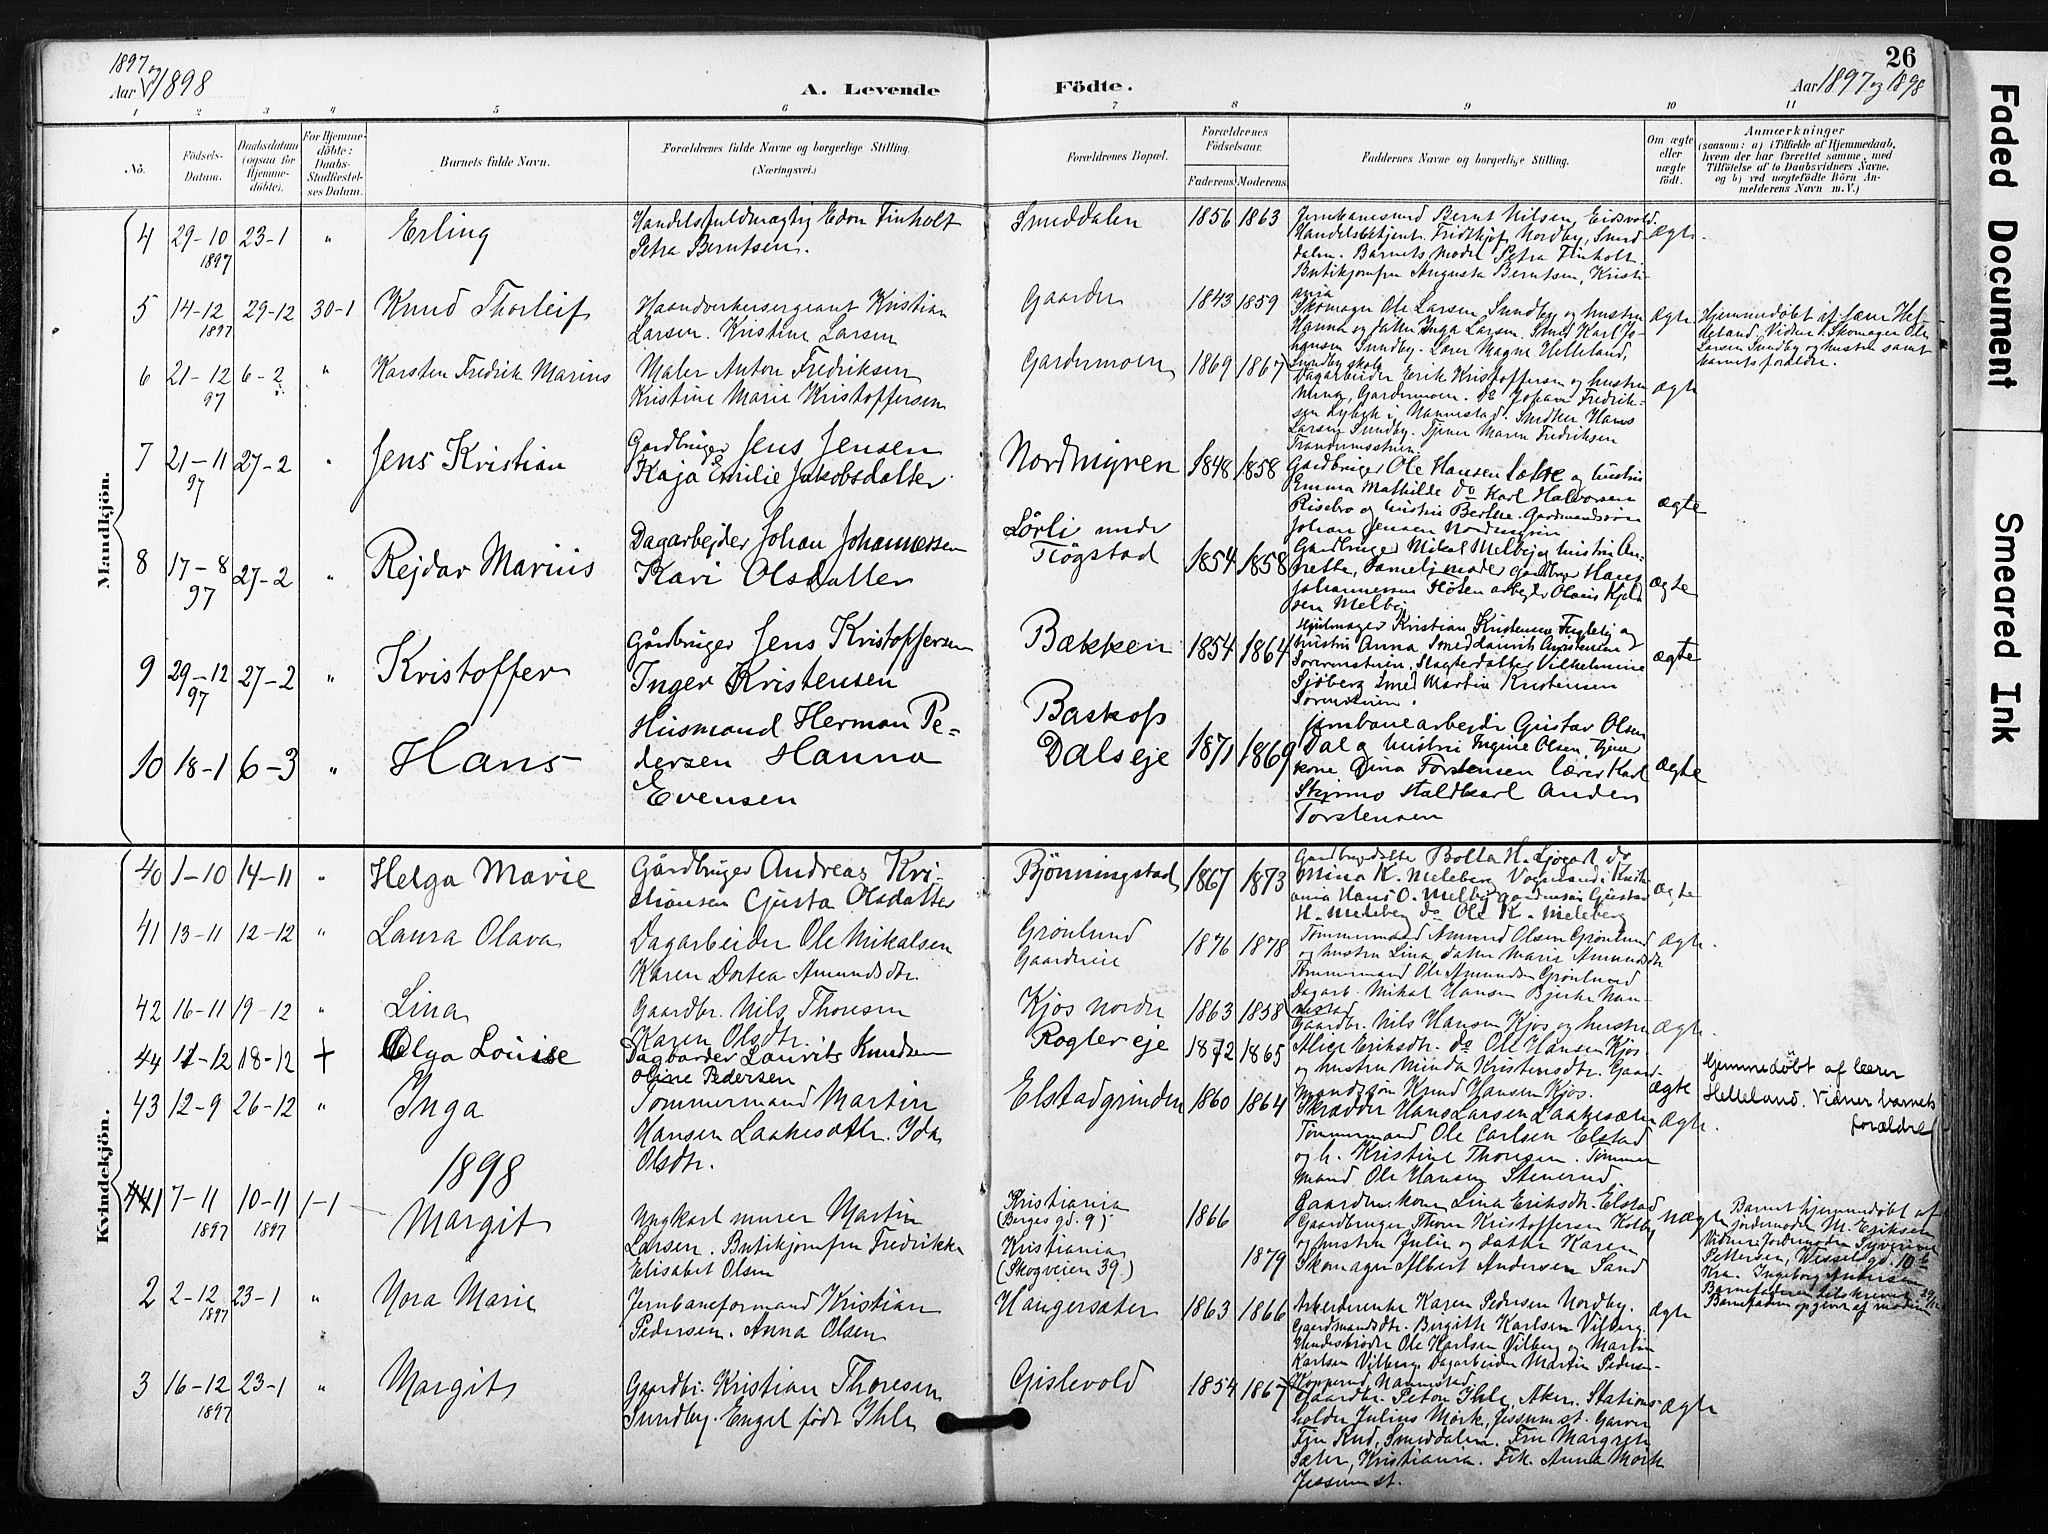 1897 og
Aar 1898
A. Levende
Födte.
26
Aar 1897 og 1898
Faded Document
Smeared Ink
1 2 3 4 5 6 7 8 9 10 11
No.
Födsels-Datum.
Daabsdatum (ogsaa for Hjemmedöbte).
For Hjemmedöbte: Daabs-Stadfæstelses Datum.
Barnets fulde Navn.
Forældrenes fulde Navne og borgerlige Stilling.
(Næringsvei.)
Forældrenes Bopæl.
Forældrenes Födselsaar.
Faderens. Moderens.
Faddernes Navne og borgerlige Stilling.
Om ægte eller uægte födt.
Anmærkninger
(saasom: a) i Tilfælde af Hjemmedaab, hvem der har forrettet samme, med Tilföielse af to Daabsvidners Navne. og b) ved uægtefödte Börn Anmelderens Navn m. V.)
Mandkjön.
4 29-10 1897 23-1 " Erling
Handelsfuldmægtig Edon Finholt
Petra Berntsen.
Smeddalen 1856 1863
Jernbanesmed Bernt Nilsen, Eidsvold
Handelsbetjent Fridthjof Nordby, Smed-
dalen. Barnets moder Petra Finholt.
Butikjomfru Augusta Berntsen, Kristi-
ania
ægte
5 14-12 1897 29-12 30-1 Knud Thorleif
Haandverkersergeant Kristian
Larsen. Kristine Larsen
Gaarder 1843 1859
Skomager Ole Larsen Sundby og hustru
Hanna og datter Inga Larsen. Smed Karl Jo-
hansen Sundby. Lærer Magne Helleland,
Sundby skole
ægte
Hjemmedøbt af lærer Hel-
leland. Vidner: Skomager Ole
Larsen Sundby og hustru samt
barnets forældre.
6 21-12 97 6-2 " Karsten Fredrik Marius
Maler Anton Fredriksen
Kristine Marie Kristoffersen
Gardermoen 1869 1867
Dagarbeider Erik Kristoffersen og hustru
Mina, Gardermoen. do Johan Fredrik-
sen Lybeck i Nannestad. Snedker Hans
Larsen Sundby. Tjener Maren Fredriksen
Trandumsstuen
ægte
7 21-11 97 27-2 " Jens Kristian
Gardbruger Jens Jensen
Kaja Emilie Jakobsdatter
Nordmyren 1848 1858
Gardbruger Ole Hansen Løkre og hustru
Emma Mathilde do Karl Halvorsen
Risebro og hustru Berthe. Gardmandssøn
Johan Jensen Nordmyren
ægte
8 17-8 97 27-2 " Rejdar Marius
Dagarbejder Johan Johannessen
Kari Olsdatter
Lørli under
Tiøgstad 1854 1858
Gardbruger Mikal Melby og hustru An-
nette, Gardbruger Hans
Johannessen arbejder Olaus Kjeld-
sen Melby
ægte
9 29-12 97 27-2 " Kristoffer
Gårdbruger Jens Kristoffersen
Inger Kristensen
Bækken 1854 1864
Hjulmager Kristian Kristensen og
hustru Anna Smed Laurits Kristensen
Slagterdatter Vilhelmine
Sjøberg Smed Martin Kristensen
ægte
10 18-1 6-3 " Hans
Husmand Herman Pe-
dersen Hanna
Evensen
Baskop
Dalseje 1871 1869
Jernbanearbejder Gustav Olsen
Dal og hustru Ingine Olsen tjener
kone Dina Torstensen lærer Karl
Skjømo staldkarl Anders
Torstensen
ægte
Kvindekjön.
40 1-10 14-11 " Helga Marie
Gårdbruger Andreas Kri-
stiansen Gusta Olsdatter
Bjønningstad 1867 1873
Gardbrugerdatter Bolla H. Ljøgodt do
Mina K. Meleberg Vognmand i Kristi-
ania Hans O. Melby gardmansøn Gustav
H. Meleberg do Ole K. Meleberg
ægte
41 13-11 12-12 " Laura Olava
Dagarbeider Ole Mikalsen
Karen Dortea Amundsdtr.
Grønlund
Gaardereie 1876 1878
Tømmermand Amund Olsen Grønlund
og hustru Lina, datter Marie Amundsdtr
Tømmermand Ole Amundsen Grønlund
Dagarb. Mikal Hansen Bjerke Nan-
nestad
ægte.
42 16-11 19-12 " Lina
Gaardbr. Nils Thoresen
Karen Olsdtr.
Kjos nordre 1863 1858
Gaardbr. Nils Hansen Kjos og hustru
Alice Eriksdtr. do Ole Hansen Kjos
og hustru Minda Kristensdtr. Gaard-
mandssøn Knud Hansen Kjos.
ægte.
44 11-12 18-12 + Olga Louise
Dagbarder Laurits Knudsen
oline Pedersen
Rogler eje 1872 1865
ægte
Hjemmedøbt af lærer
Helleland. Vidner barnets
forældre
43 12-9 26-12 " Inga
Tømmermand Martin
Hansen Laakesæter. Ida
Olsdtr.
Elstadgrinden 1860 1864
Skrædder Hans Larsen Laakesæter
Tømmermand Ole Carlsen Elstad
og h. Kristine Thoresen. Tømmer
mand Ole Hansen Stenerud
ægte.
1898
1 7-11 1897 10-11 1897 1-1 Margit
Ungkarl murer Martin
Larsen. Butikjomfru Fredrikke
Elisabet Olsen
Kristiania
(Borges gd. 9)
Kristiania
(Skogveien 39.) 1866 1879
Gaardmkone Lina Eriksdtr. Elstad
Gaardbruger Thorer Kristoffersen Kolby
og hustru Julie og datter Karen
Skomager Albert Andersen Sand
uægte
Barnet hjemmedøbt af
jordemoder M. Eriksen
Vidner: Jordemoder Syverine
Pettersen, Wesselsgd. 10 b
Kra. Ingeborg Andersen
Barnefaderen tilskrevet 29/12
Barnefaderen opgivet af moderen
2 2-12 1897 23-1 " Nora Marie
Jernbaneformand Kristian
Pedersen. Anna Olsen
Haugersæter 1863 1866
Arbeiderenke Karen Pedersen Nordby.
Gaardmandsdtr. Birgitte Karlsen Vilberg.
Hendes brødre Ole Karlsen Vilberg og Martin
Karlsen Vilberg. Dagarbeider Martin Peders-
Kopperud, Nannestad
ægte
3 16-12 1897 23-1 " Margit
Gaardbr. Kristian Thoresen
Sundby. Engel født Ihle
Gislevold 1854 1867
Gaardbr. Peton Ihle, Aker. Stations-
holder Julius Mørk, Jessum st. Garver
Finn Rud, Smeddalen. Fru Margrete
Sæter, Kristiania. Frk. Anna Mørk
Jessum st.
ægte